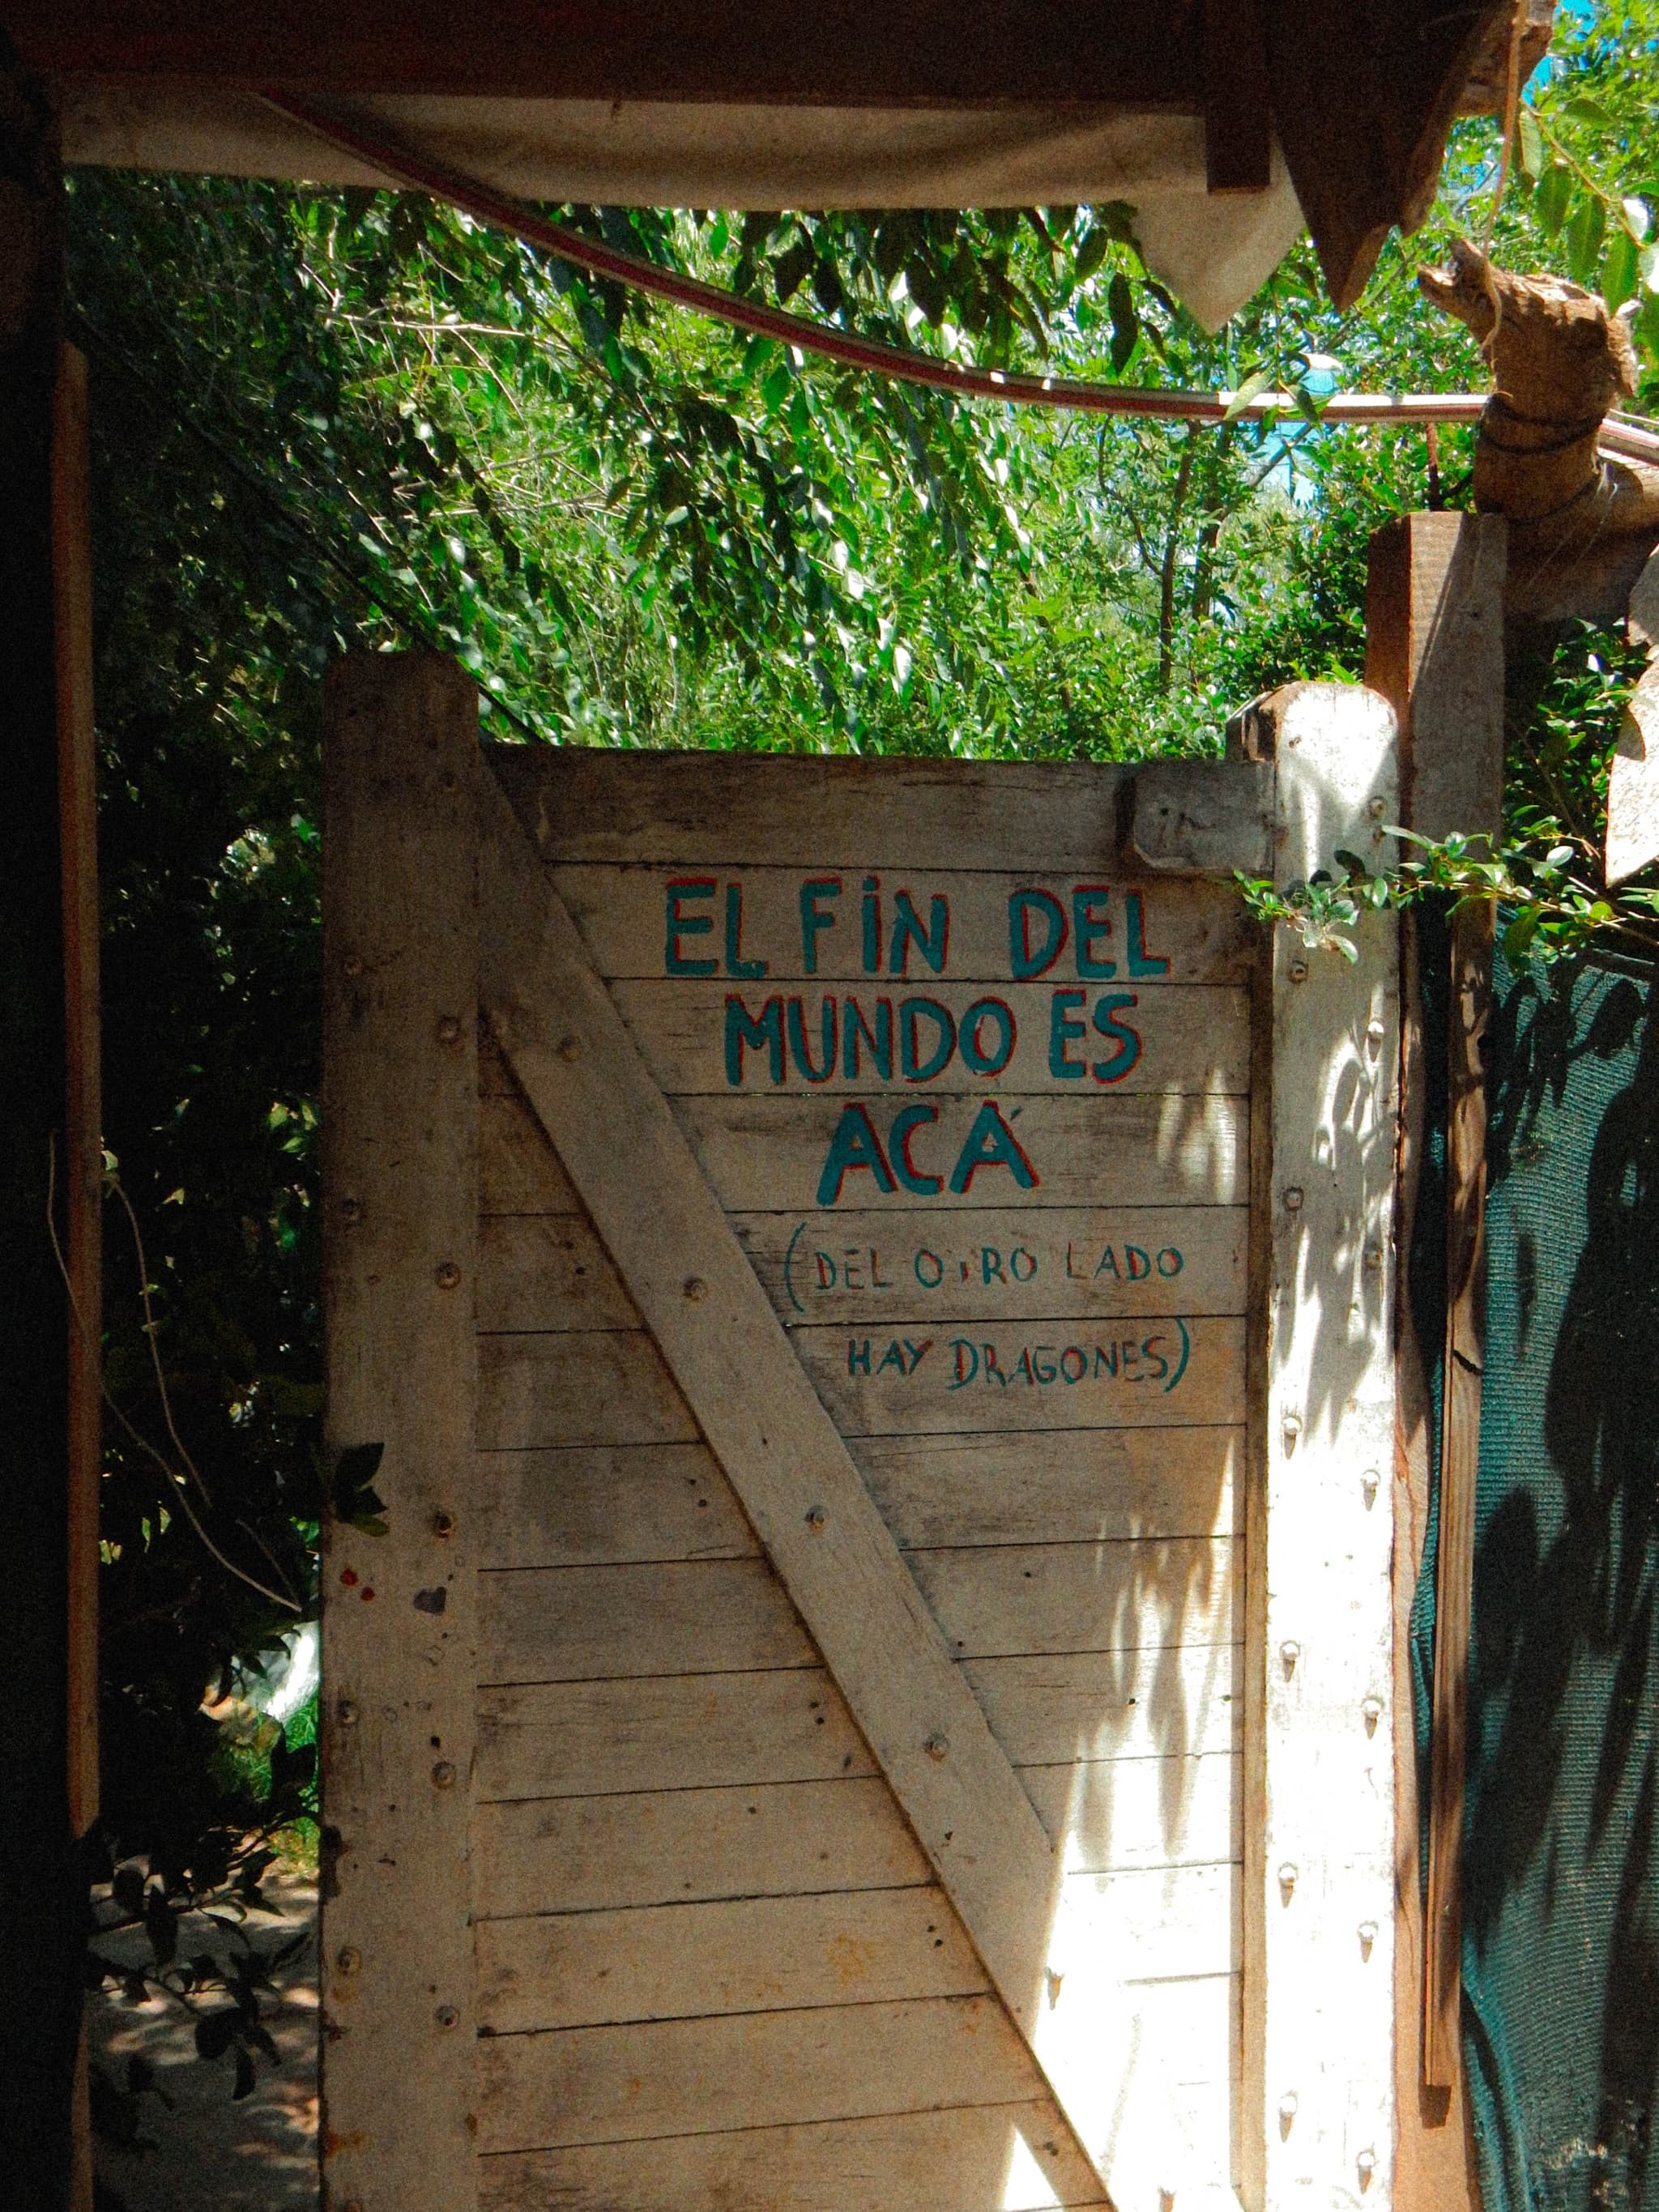 EL FIN DEL
MUNDO ES
ACÁ
(DEL OTRO LADO
HAY DRAGONES)